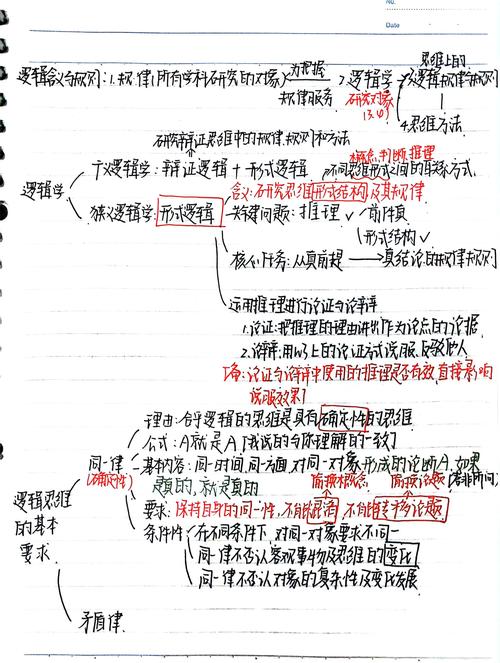 No.
Date
思维上的
逻辑含义与规则:1.规律(所有学科研究的对象) 为把握 规律服务 2.逻辑学 3.逻辑规律与规则
研究对象
(3.4)
4.思维方法
研究辩证思维中的规律,规则和方法
概念,判断,推理
广义逻辑学:辩证逻辑+形式逻辑 不同思维形式之间的联系方式
逻辑学
含义:研究思维形式结构及其规律
狭义逻辑学:形式逻辑 关键问题:推理 前件真
形式结构
核心任务:从真前提 真结论的规律规则
运用推理进行论证与论辩
1.论证:把推理的理由讲出作为论点的论据
2.论辩:用以上的论证方式说服、反驳他人
论证与论辩中使用的推理是否有效,直接影响
说服效果
理由:合乎逻辑的思维是具有确定性的思维
公式:A就是A,(我说的与你理解的一致)
同一律 基本内容:同一时间,同一方面,对同一对象,形成的论断A,如果
(确定性) 是真的,就是真的 偷换概念 偷换论题
逻辑思维 要求:保持自身的同一性,不能混淆,不能转移论题
的基本 条件性:在不同条件下,对同一对象要求不同一
要求 同一律不否认客观事物及思维的变化
同一律不否认对象的复杂性及变化发展
矛盾律